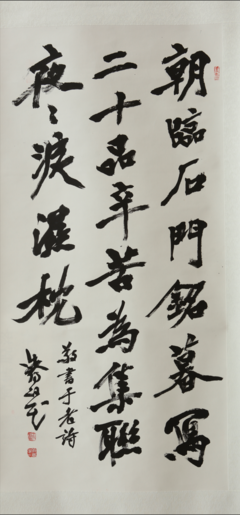 朝臨石門銘暮寫
二十品辛苦為集聯
夜〻淚濕枕
敬書于老詩